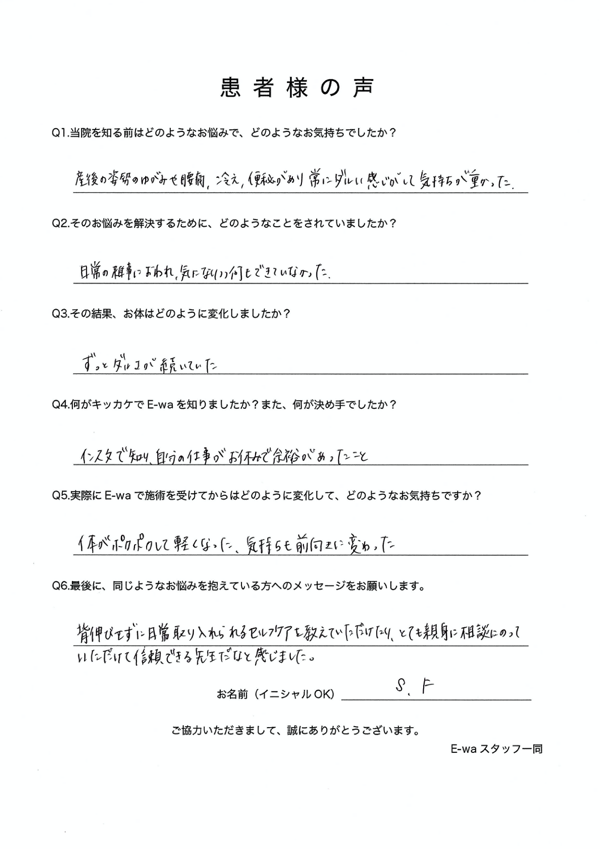 患者様の声
Q1.当院を知る前はどのようなお悩みで、どのようなお気持ちでしたか？
産後の姿勢のゆがみや腰痛、冷え、便秘があり常にダルい感じがして気持ちが重かった.
Q2.そのお悩みを解決するために、どのようなことをされていましたか？
日常の雑事におわれ、気になりつつ何もできていなかった.
Q3.その結果、お体はどのように変化しましたか？
ずっとダルさが続いていた
Q4.何がキッカケでE-waを知りましたか？また、何が決め手でしたか？
インスタで知り、自分の仕事がお休みで余裕があったこと
Q5.実際にE-waで施術を受けてからはどのように変化して、どのようなお気持ちですか？
体がポカポカして軽くなった、気持ちも前向きに変わった
Q6.最後に、同じようなお悩みを抱えている方へのメッセージをお願いします。
背伸びせずに日常取り入れられるセルフケアを教えていただけたり、とても親身に相談にのって
いただけて信頼できる先生だなと感じました。
お名前（イニシャルOK） S.F
ご協力いただきまして、誠にありがとうございます。
E-waスタッフ一同